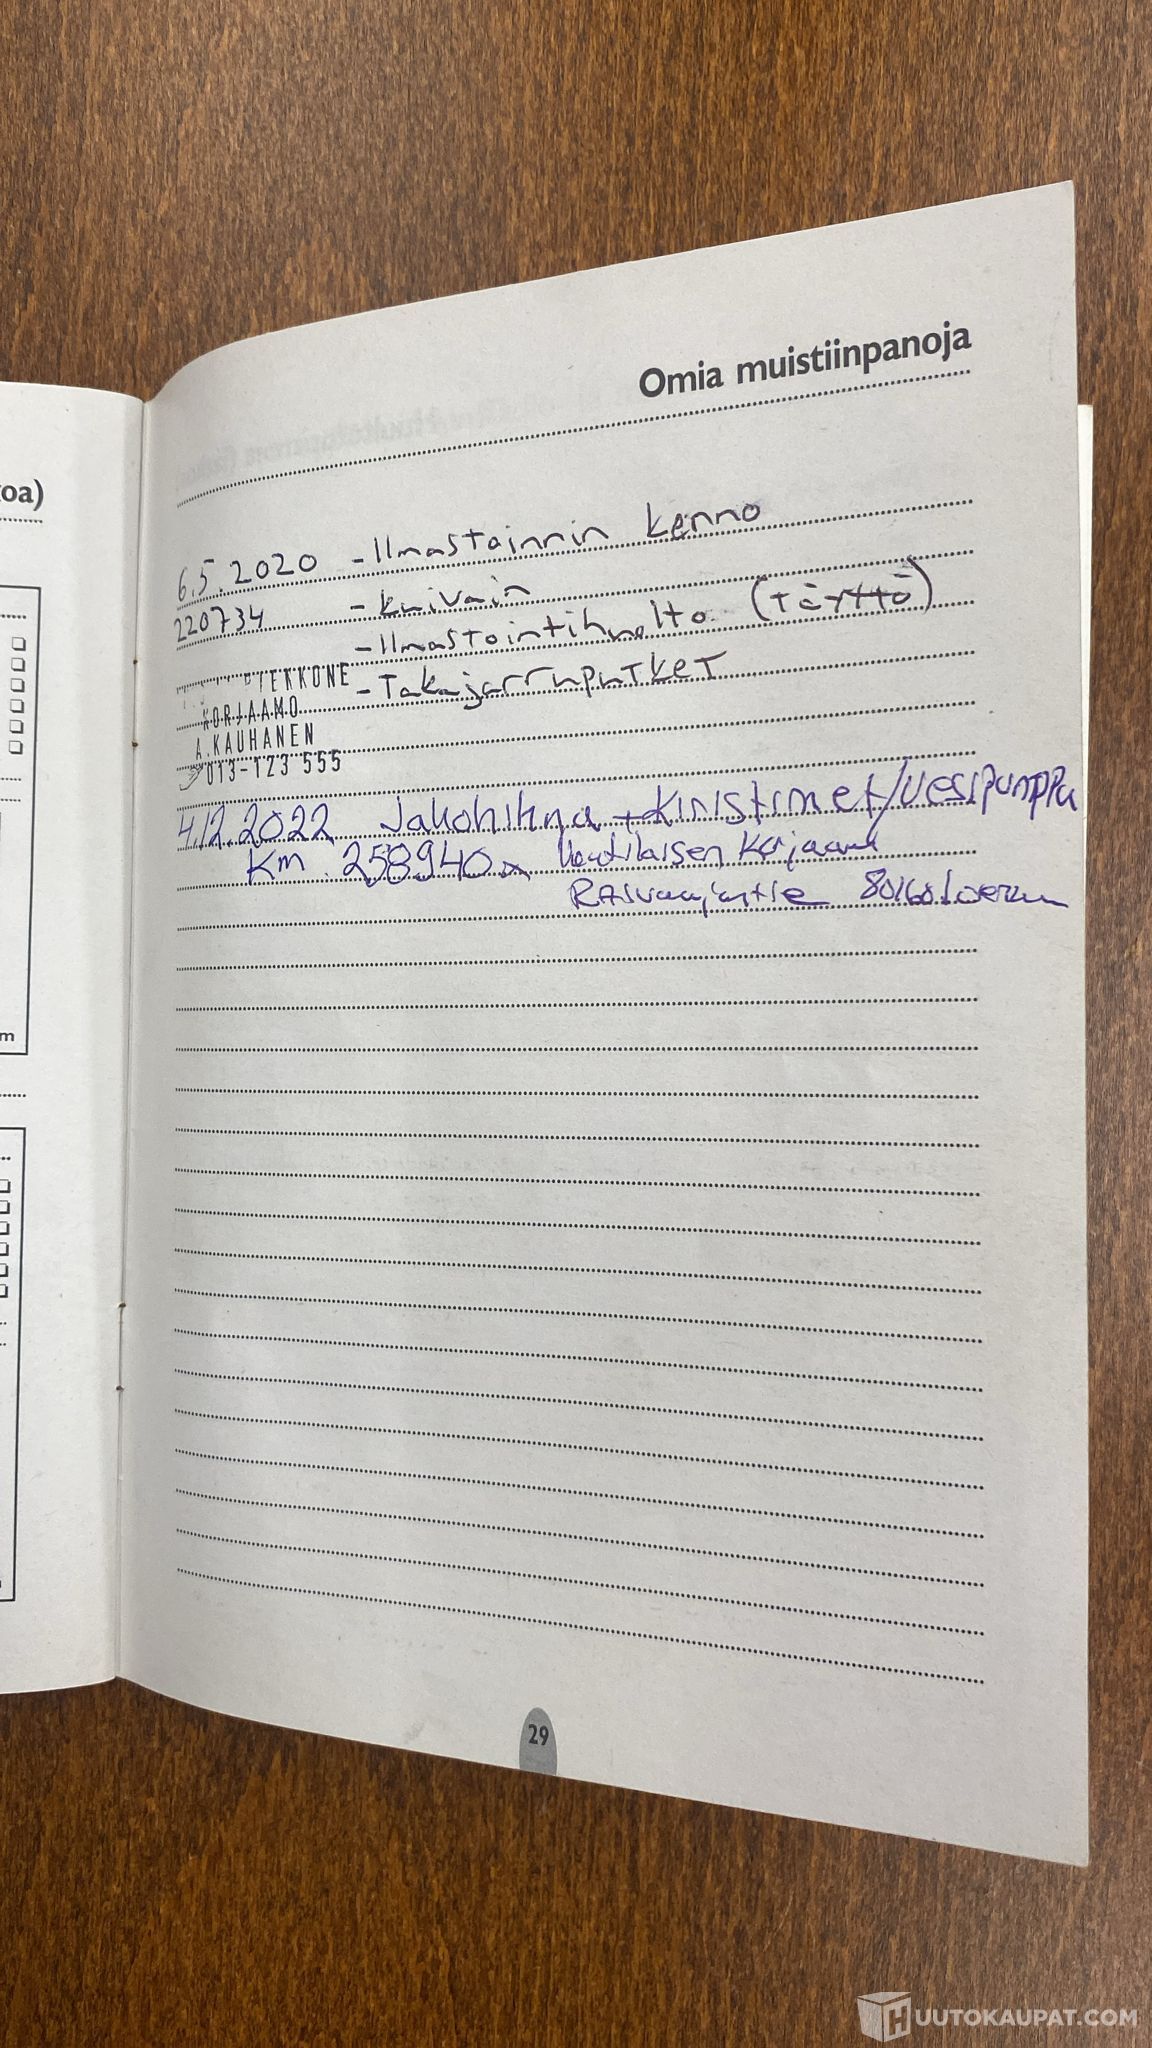 Omia muistiinpanoja
oa)
6.5.2020 - Ilmastoinnin kenno
220734 - Kuivain
- Ilmastointihuolto (TÄYTTÖ)
- Takajarruputket
KORJAAMO
A.KAUHANEN
013-123 555
4.12.2022 Jakohihna + Kiristimet/Vesipumppu
Km. 258940 Korjaamo
80160
m
29
HUUTOKAUPAT.COM